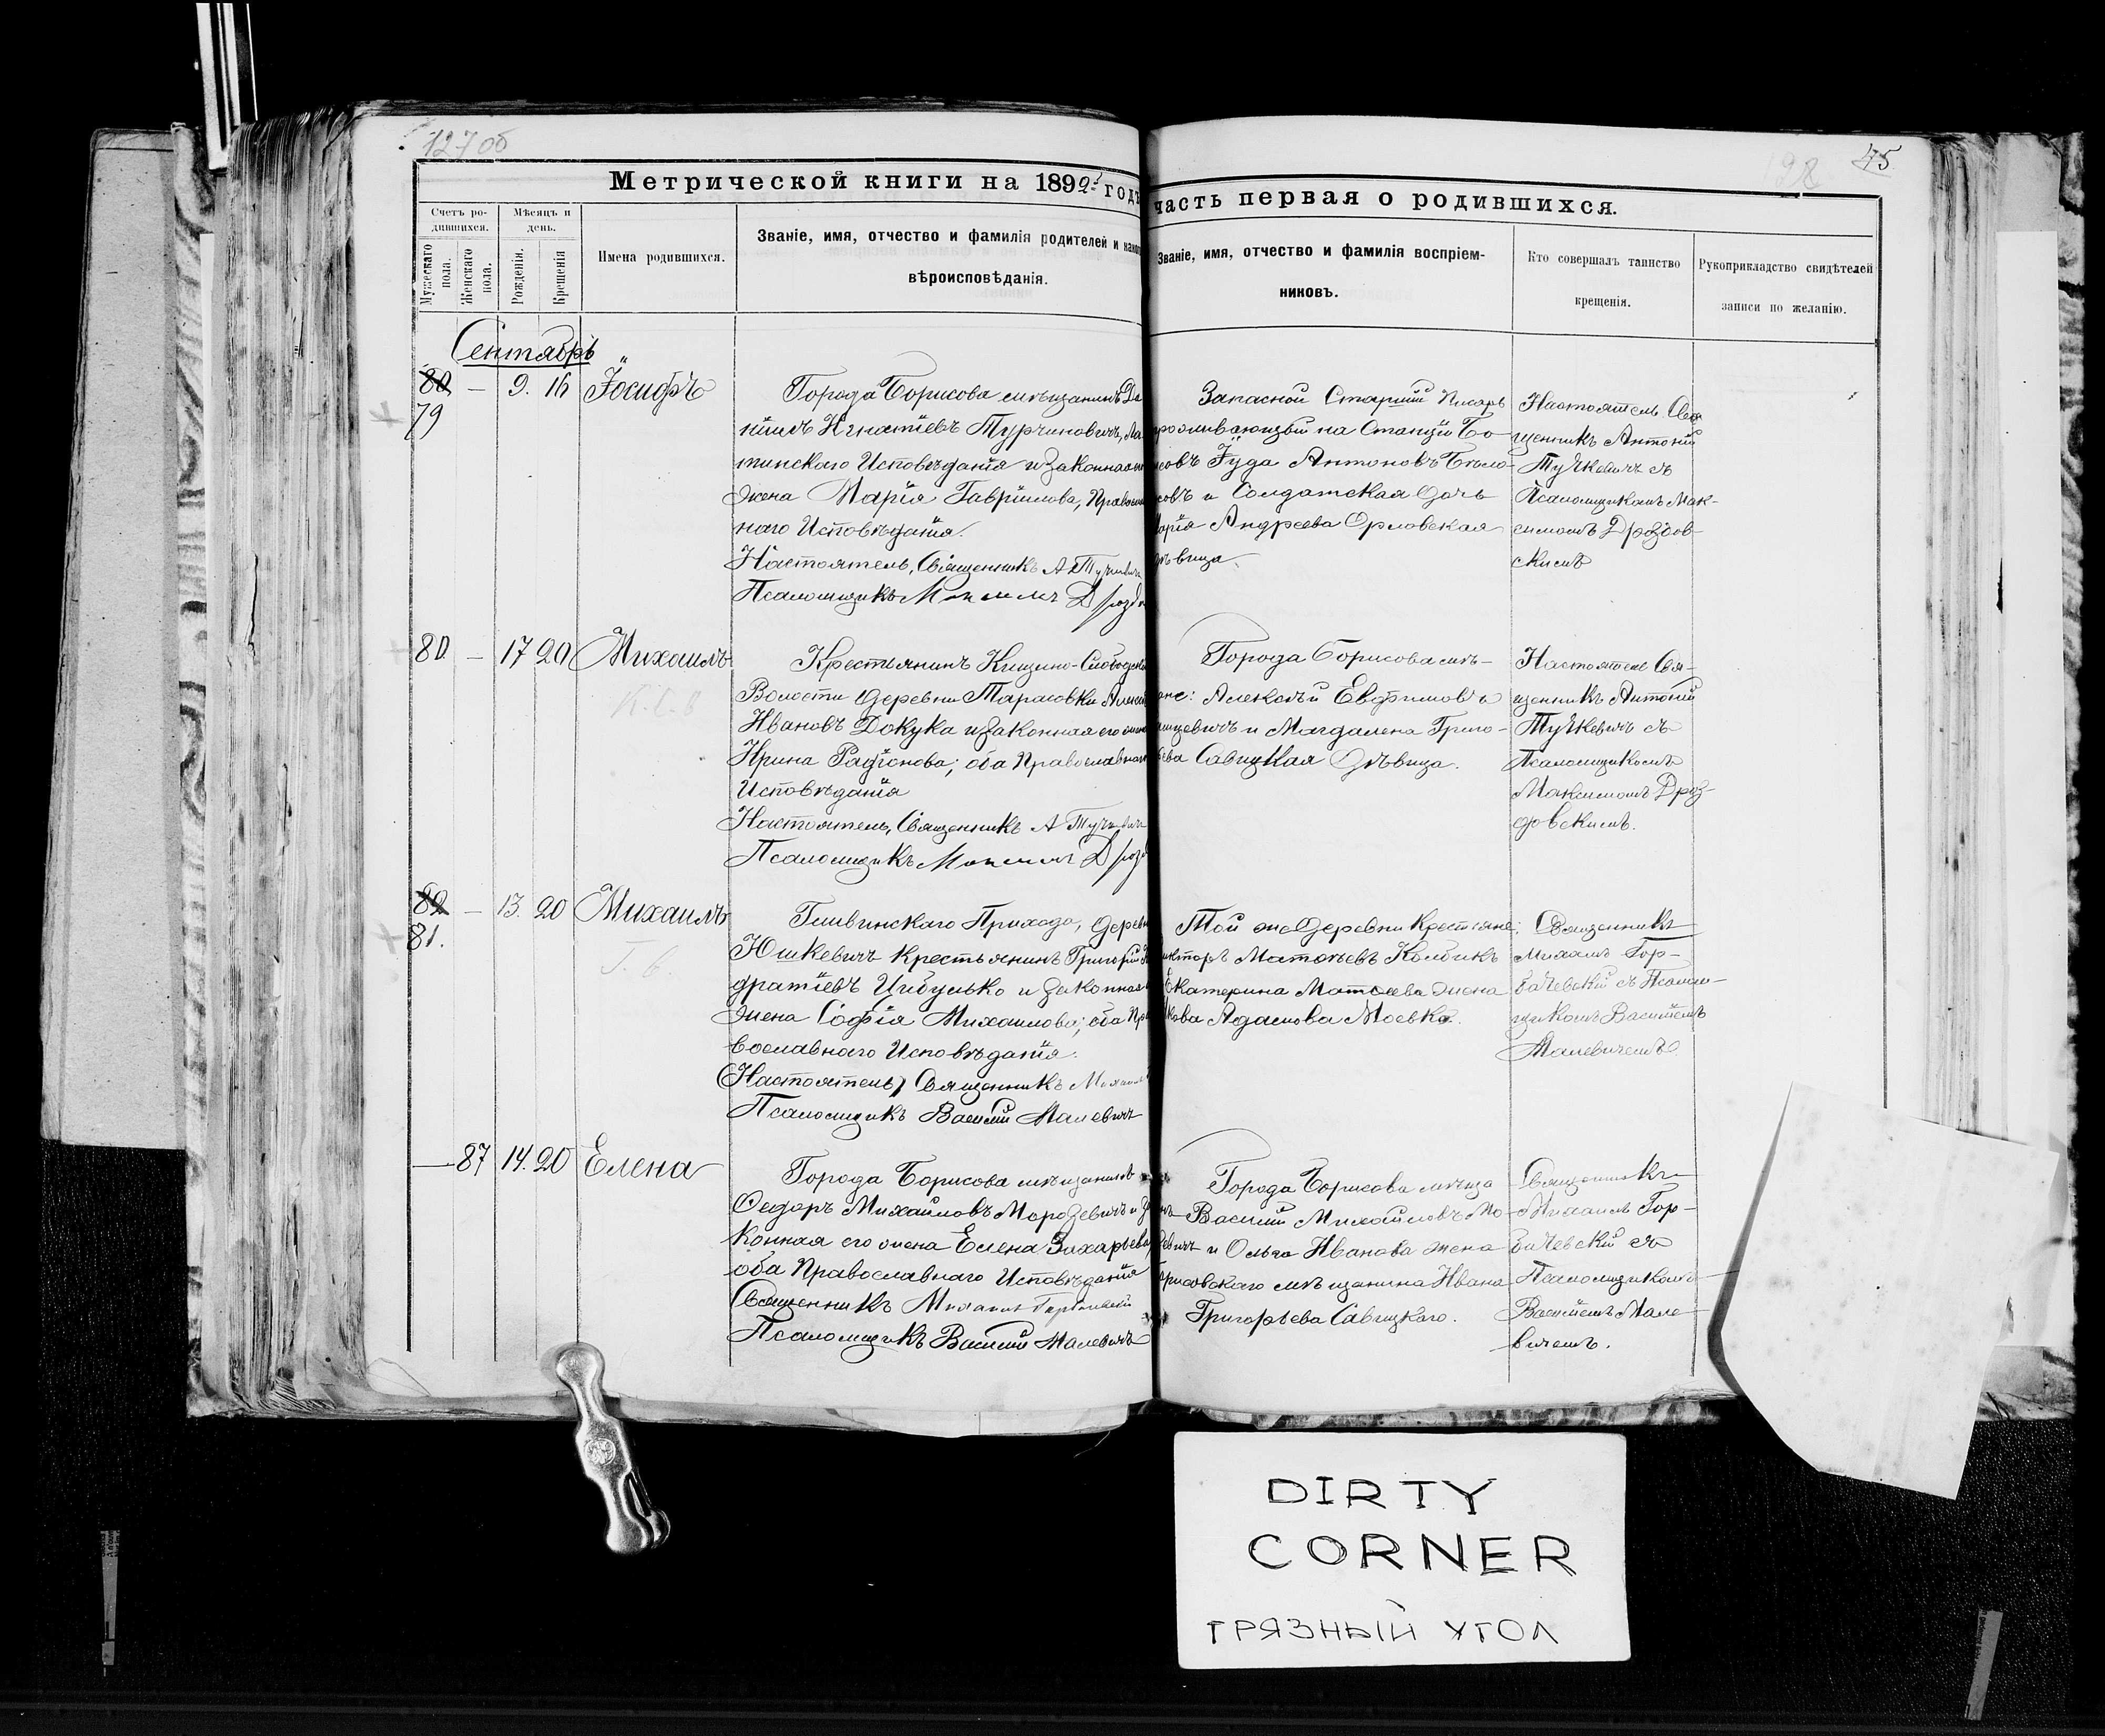 127 об
75
Метрической книги на 1892й годъ
часть первая о родившихся.
Счетъ ро-
дившихся.
Мѣсяцъ и
день.
Мужескаго
пола.
Женскаго
пола.
Рожденія.
Крещенія
Имена родившихся.
Званіе, имя, отчество и фамилія родителей и какого
вѣроисповѣданія.
Званіе, имя, отчество и фамилія воспріем-
никовъ.
Кто совершалъ таинство
крещенія.
Рукоприкладство свидѣтелей
записи по желанію.
Сентябрь
80
79
—
9.
16
Іосифъ
Города Борисова мѣщанинъ Да
ніилъ Игнатіевъ Турчиновичъ, Ла
тинскаго Исповѣданія и законная
жена Марія Гавріилова, Правосл
наго Исповѣданія.
Настоятель, Священникъ А Тучкевич
Псаломщикъ Максимъ Дрозд
Запасной Старшій Писарь
проживающій на Станціи Бо-
совъ Іуда Антоновъ Бѣло-
совъ и Солдатская дочь
Марія Андреева Орловская
дѣвица.
Настоятель Свя
щенникъ Антоній
Тучкевичъ съ
Псаломщикомъ Мак-
симомъ Дроздов-
скимъ
80
—
17
20
Михаилъ
Крестьянинъ Кищино-Слободск
Волости деревни Тарасовки Алексѣй
Ивановъ Докука и законная его жена
Ирина Радіонова; оба Православнаго
Исповѣданія
Настоятель, Священникъ А Тучкевич
Псаломщикъ Максимъ Дрозд
Города Борисова мѣ-
ане: Алексѣй Евфимовъ
и Магдалена Григо-
ьева Савицкая Дѣвица.
Настоятель Свя-
щенникъ Антоній
Тучкевичъ съ
Псаломщикомъ
Максимомъ Дроз-
довскимъ.
82
81.
—
13.
20
Михаилъ
Гливинскаго Прихода, Дерев
Юшкевичъ крестьянинъ Григорій Кон
дратіевъ Цибулько и законная
жена Софія Михаилова; оба Пра
вославнаго Исповѣданія.
Настоятель, Священникъ Михаилъ
Псаломщикъ Василій Малевичъ
Той же Деревни Крестьяне:
Викторъ Матвѣевъ Колбикъ
Екатерина Матвѣева жена
Адамова
Священникъ
Михаилъ Гор-
бачевскій съ Псалом-
щикомъ Василіемъ
Малевичемъ
—
87
14.
20
Елена
Города Борисова мѣщанинъ
Ѳедоръ Михайловъ Морозевичъ и за
конная его жена Елена Захарьева,
оба Православнаго Исповѣданія
Священникъ Михаилъ Горбачевскій
Псаломщикъ Василій Малевичъ
Города Борисова мѣща
нъ Василій Михайловъ Мо-
зевичъ и Ольга Иванова жена
Борисовскаго мѣщанина Ивана
Григорьева Савицкаго.
Священникъ
Михаилъ Гор-
бачевскій съ
Псаломщикомъ
Василіемъ Мале
вичемъ.
DIRTY
CORNER
ГРЯЗНЫЙ УГОЛ